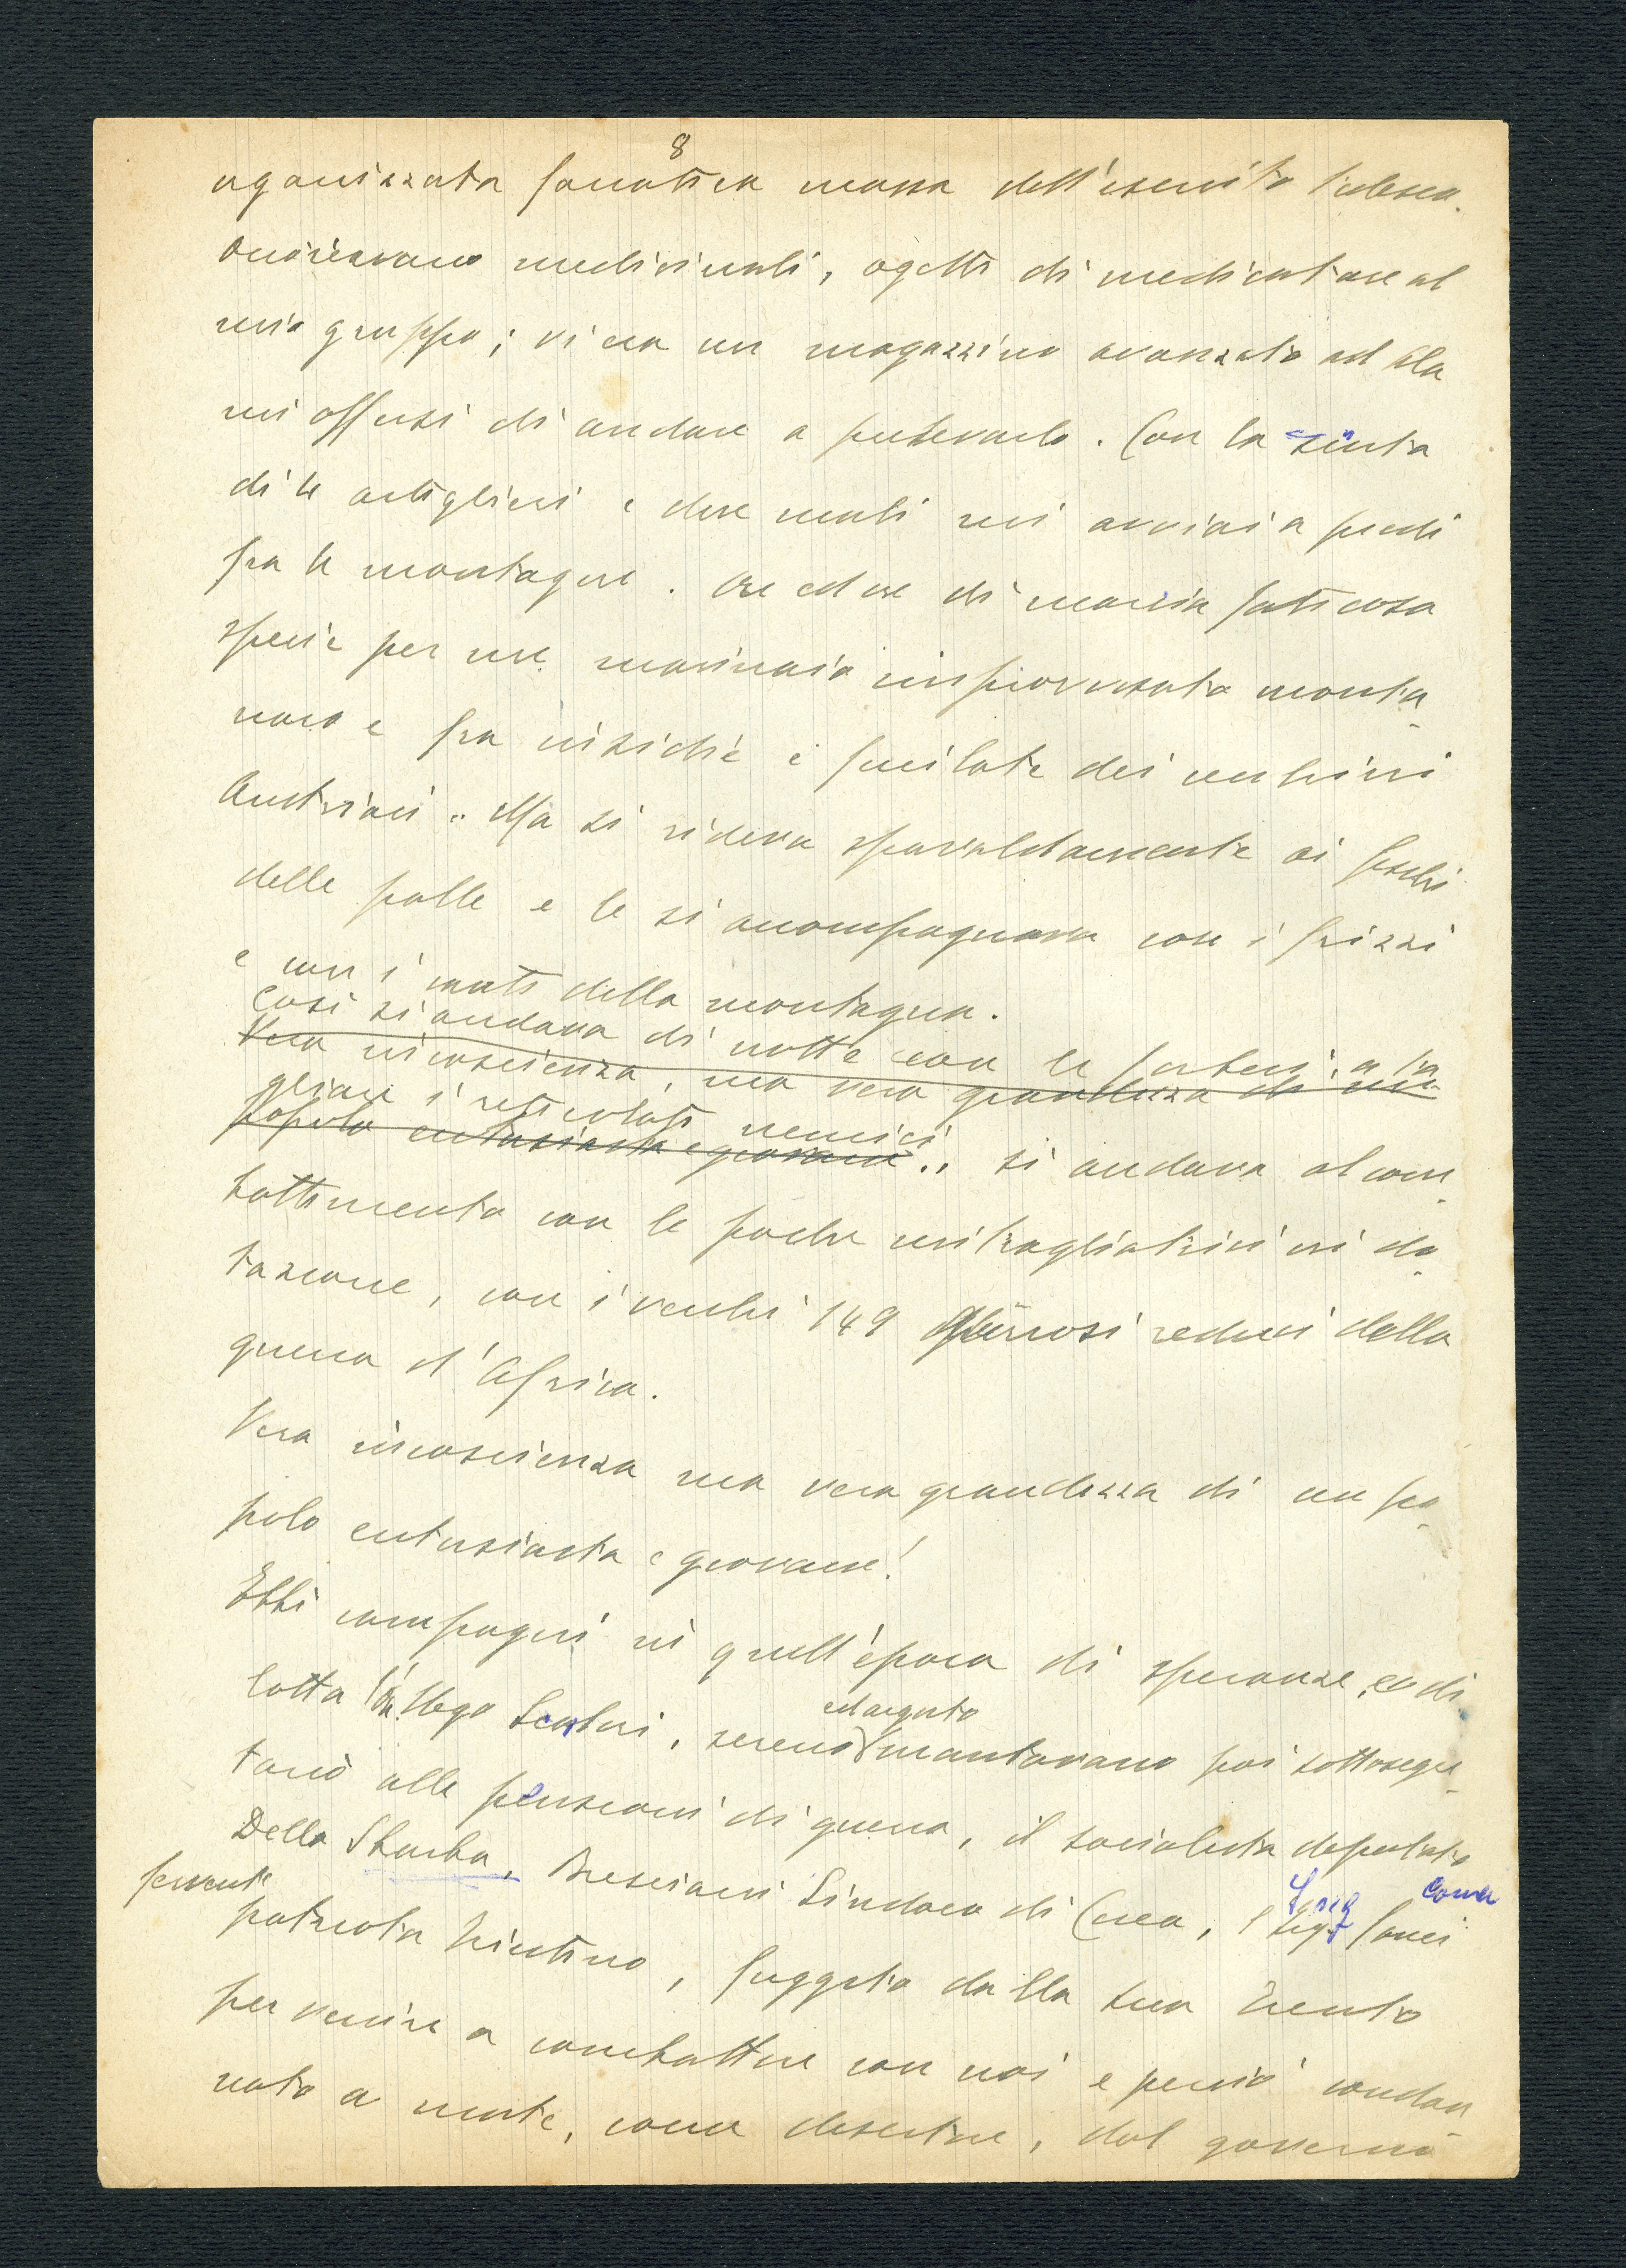 8
organizzata fanatica massa dell'esercito tedesco.
Occorrevano medicinali, ogetti di medicatura al
mio gruppo; vi era un magazzino avanzato ad Ala
mi offersi di andare a prelevarlo. Con la scorta
di tre artiglieri e due muli mi avviai a piedi
fra le montagne. Ore ed ore di marcia faticosa
specie per un marinaio improvvisato monta-
naro e fra insidie e fucilate dei cecchini
Austriaci.. Ma si rideva spavaldamente ai fischi
delle palle e le si accompagnava con i frizzi
e con i canti della montagna.
Cosi si andava di notte con le forbici a ta-
Vera incoscienza, ma vera grandezza di un
gliare i reticolati nemici
popolo entusiasta e giovane.. si andava al com-
battimento con le poche mitragliatrici in do-
tazione, con i vecchi 149 gloriosi reduci della
guerra d'Africa.
Vera incoscienza ma vera grandezza di un po-
polo entusiasta e giovane!
Ebbi compagni in quell'epoca di speranze, e di
lotta l'on. Ugo Scalori, sereno ed arguto mantovano poi sottosegre-
tario alle pensioni di guerra, il socialista deputato
Della Sbarba, Bresciani Sindaco di Cerea,
fervente
patriota trintino, fuggito dalla sua Trento
per venire a combattere con noi e perciò condan
nato a morte, come desertore, dal governo